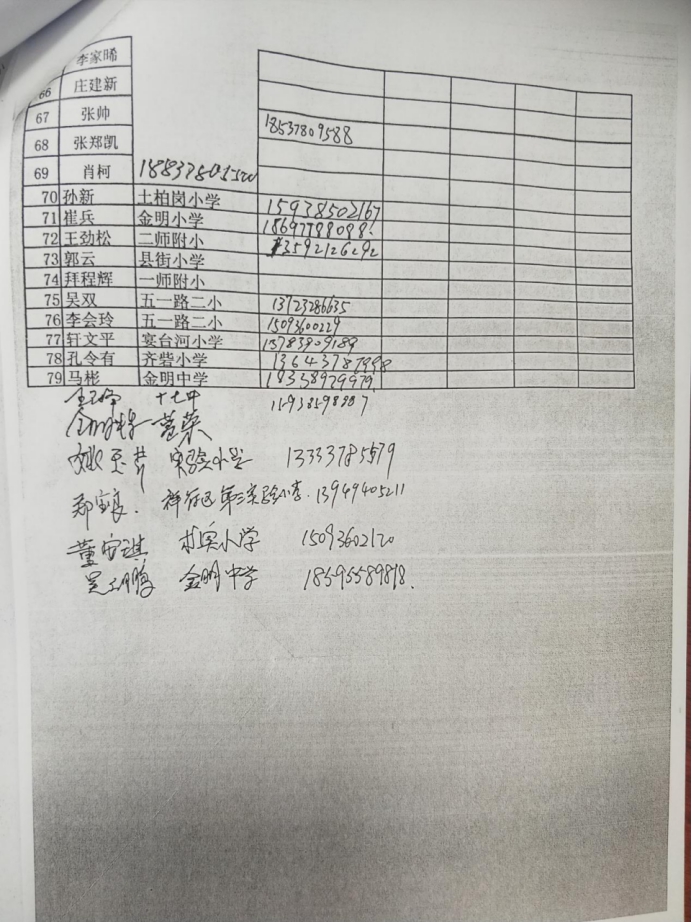 李家晞
66 庄建新
67 张帅
68 张郑凯 18537809588
69 肖柯
70 孙新 土柏岗小学 15938502167
71 崔兵 金明小学
72 王劲松 二师附小 13592126292
73 郭云 县街小学
74 拜程辉 一师附小
75 吴双 五一路二小 13723286635
76 李会玲 五一路二小 15093600229
77 轩文平 宴台河小学 15783809189
78 孔令有 齐砦小学 13643787998
79 马彬 金明中学 18338979979
十七中
实验小学 13333785579
郑宝良. 祥符区第三实验小学. 13949405211
董安琪 求实小学 15093602120
金明中学 18595589818.